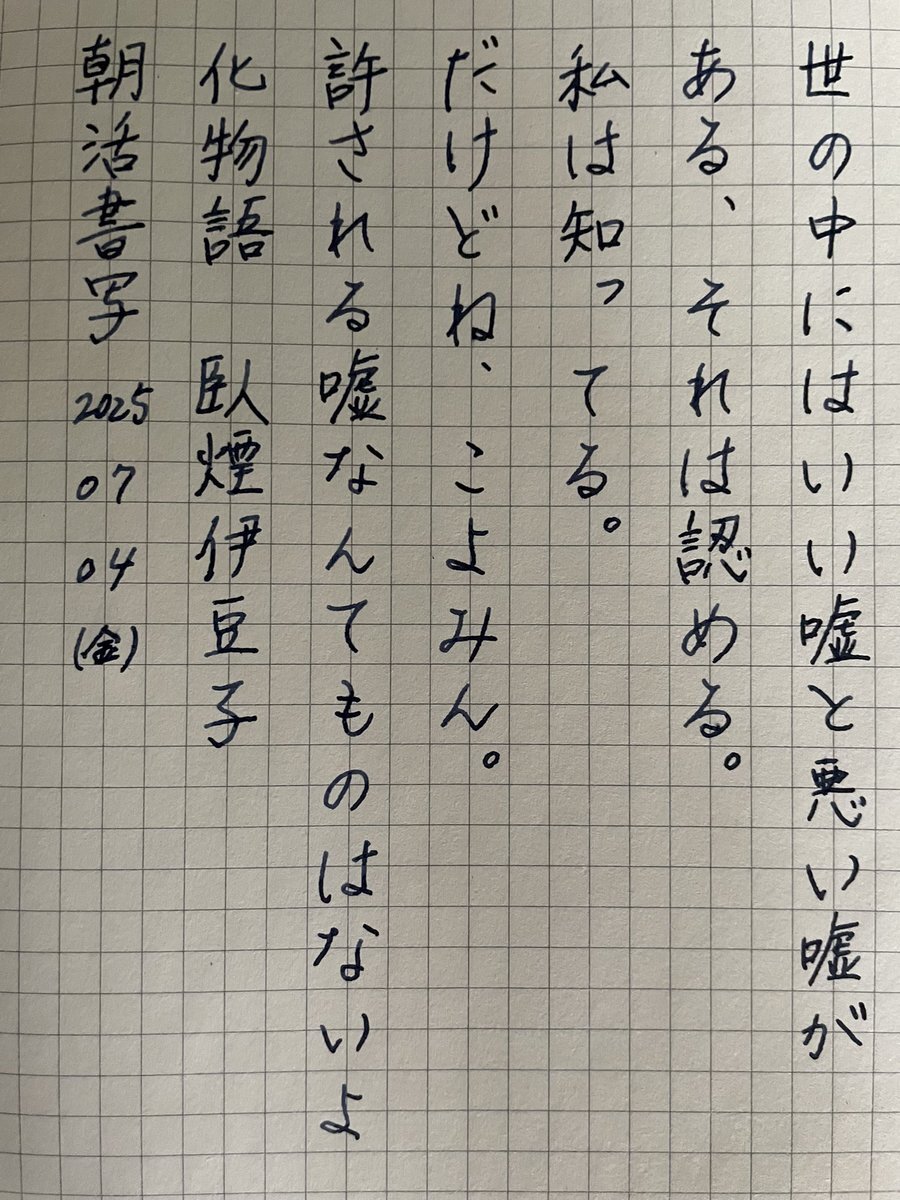 世の中にはいい嘘と悪い嘘が
ある、それは認める。
私は知ってる。
だけどね、こよみん。
許される嘘なんてものはないよ
化物語 臥煙伊豆子
朝活書写 2025 07 04 (金)